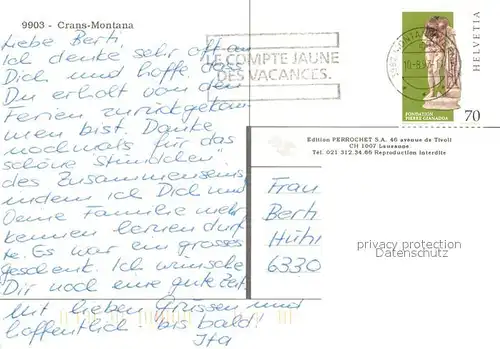 9903 - Crans-Montana
Liebe Berti,
Ich denke sehr oft an
Dich und hoffe, dass
Du erholt von den
Ferien zurückgekom
men bist. Danke
nochmals für das
schöne Stündchen
des Zusammenseins,
indem ich Dich und
Deine Familie mehr
kennen lernen durf
te. Es war ein grosses
Geschenk. Ich wünsche
Dir noch eine gute Zeit.
Mit lieben Grüssen und
hoffentlich bis bald!
Ita
LE COMPTE JAUNE
DES VACANCES.
3962 MONTANA
HELVETIA
FONDATION
PIERRE GIANADDA
70
Edition PERROCHET S.A. 46 avenue de Tivoli
CH 1007 Lausanne
Tél. 021 312.34.66 Reproduction interdite
Frau
Berti
6330
privacy protection
Datenschutz